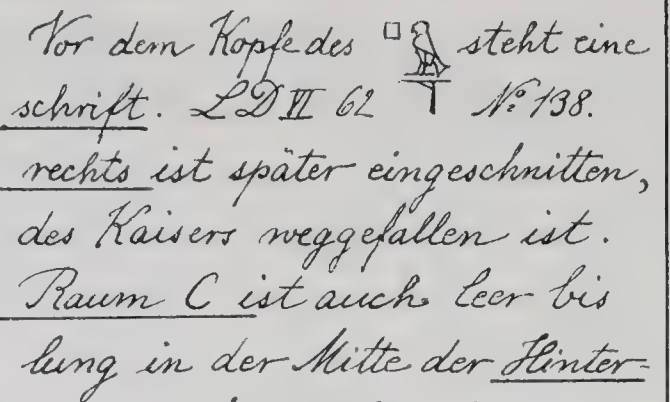 Vor dem Kopfe des steht eine
schrift. LD VI 62 No 138.
rechts ist später eingeschnitten,
des Kaisers weggefallen ist.
Raum C ist auch leer bis
lung in der Mitte der Hinter-